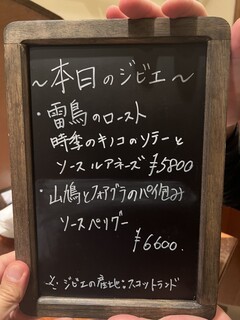 ～本日のジビエ～
・雷鳥のロースト
時季のキノコのソテーと
ソースルアネーズ ¥5800
・山鳩とフォアグラのパイ包み
ソースペリグー
¥6600.
ジビエの産地:スコットランド